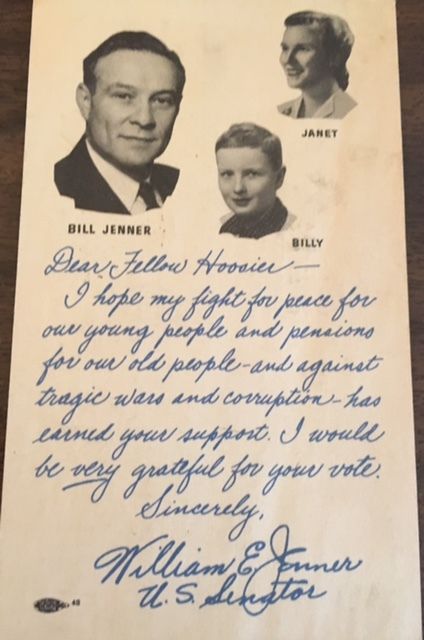 JANET
BILL JENNER
BILLY
Dear Fellow Hoosier —
I hope my fight for peace for
our young people and pensions
for our old people - and against
tragic wars and corruption - has
earned your support. I would
be very grateful for your vote.
Sincerely,
William E. Jenner
U.S. Senator